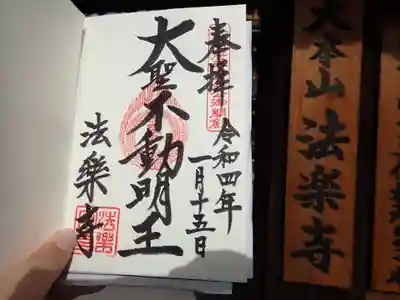 奉拝
令和四年
一月十五日
大聖不動明王
法樂寺
大本山 法楽寺